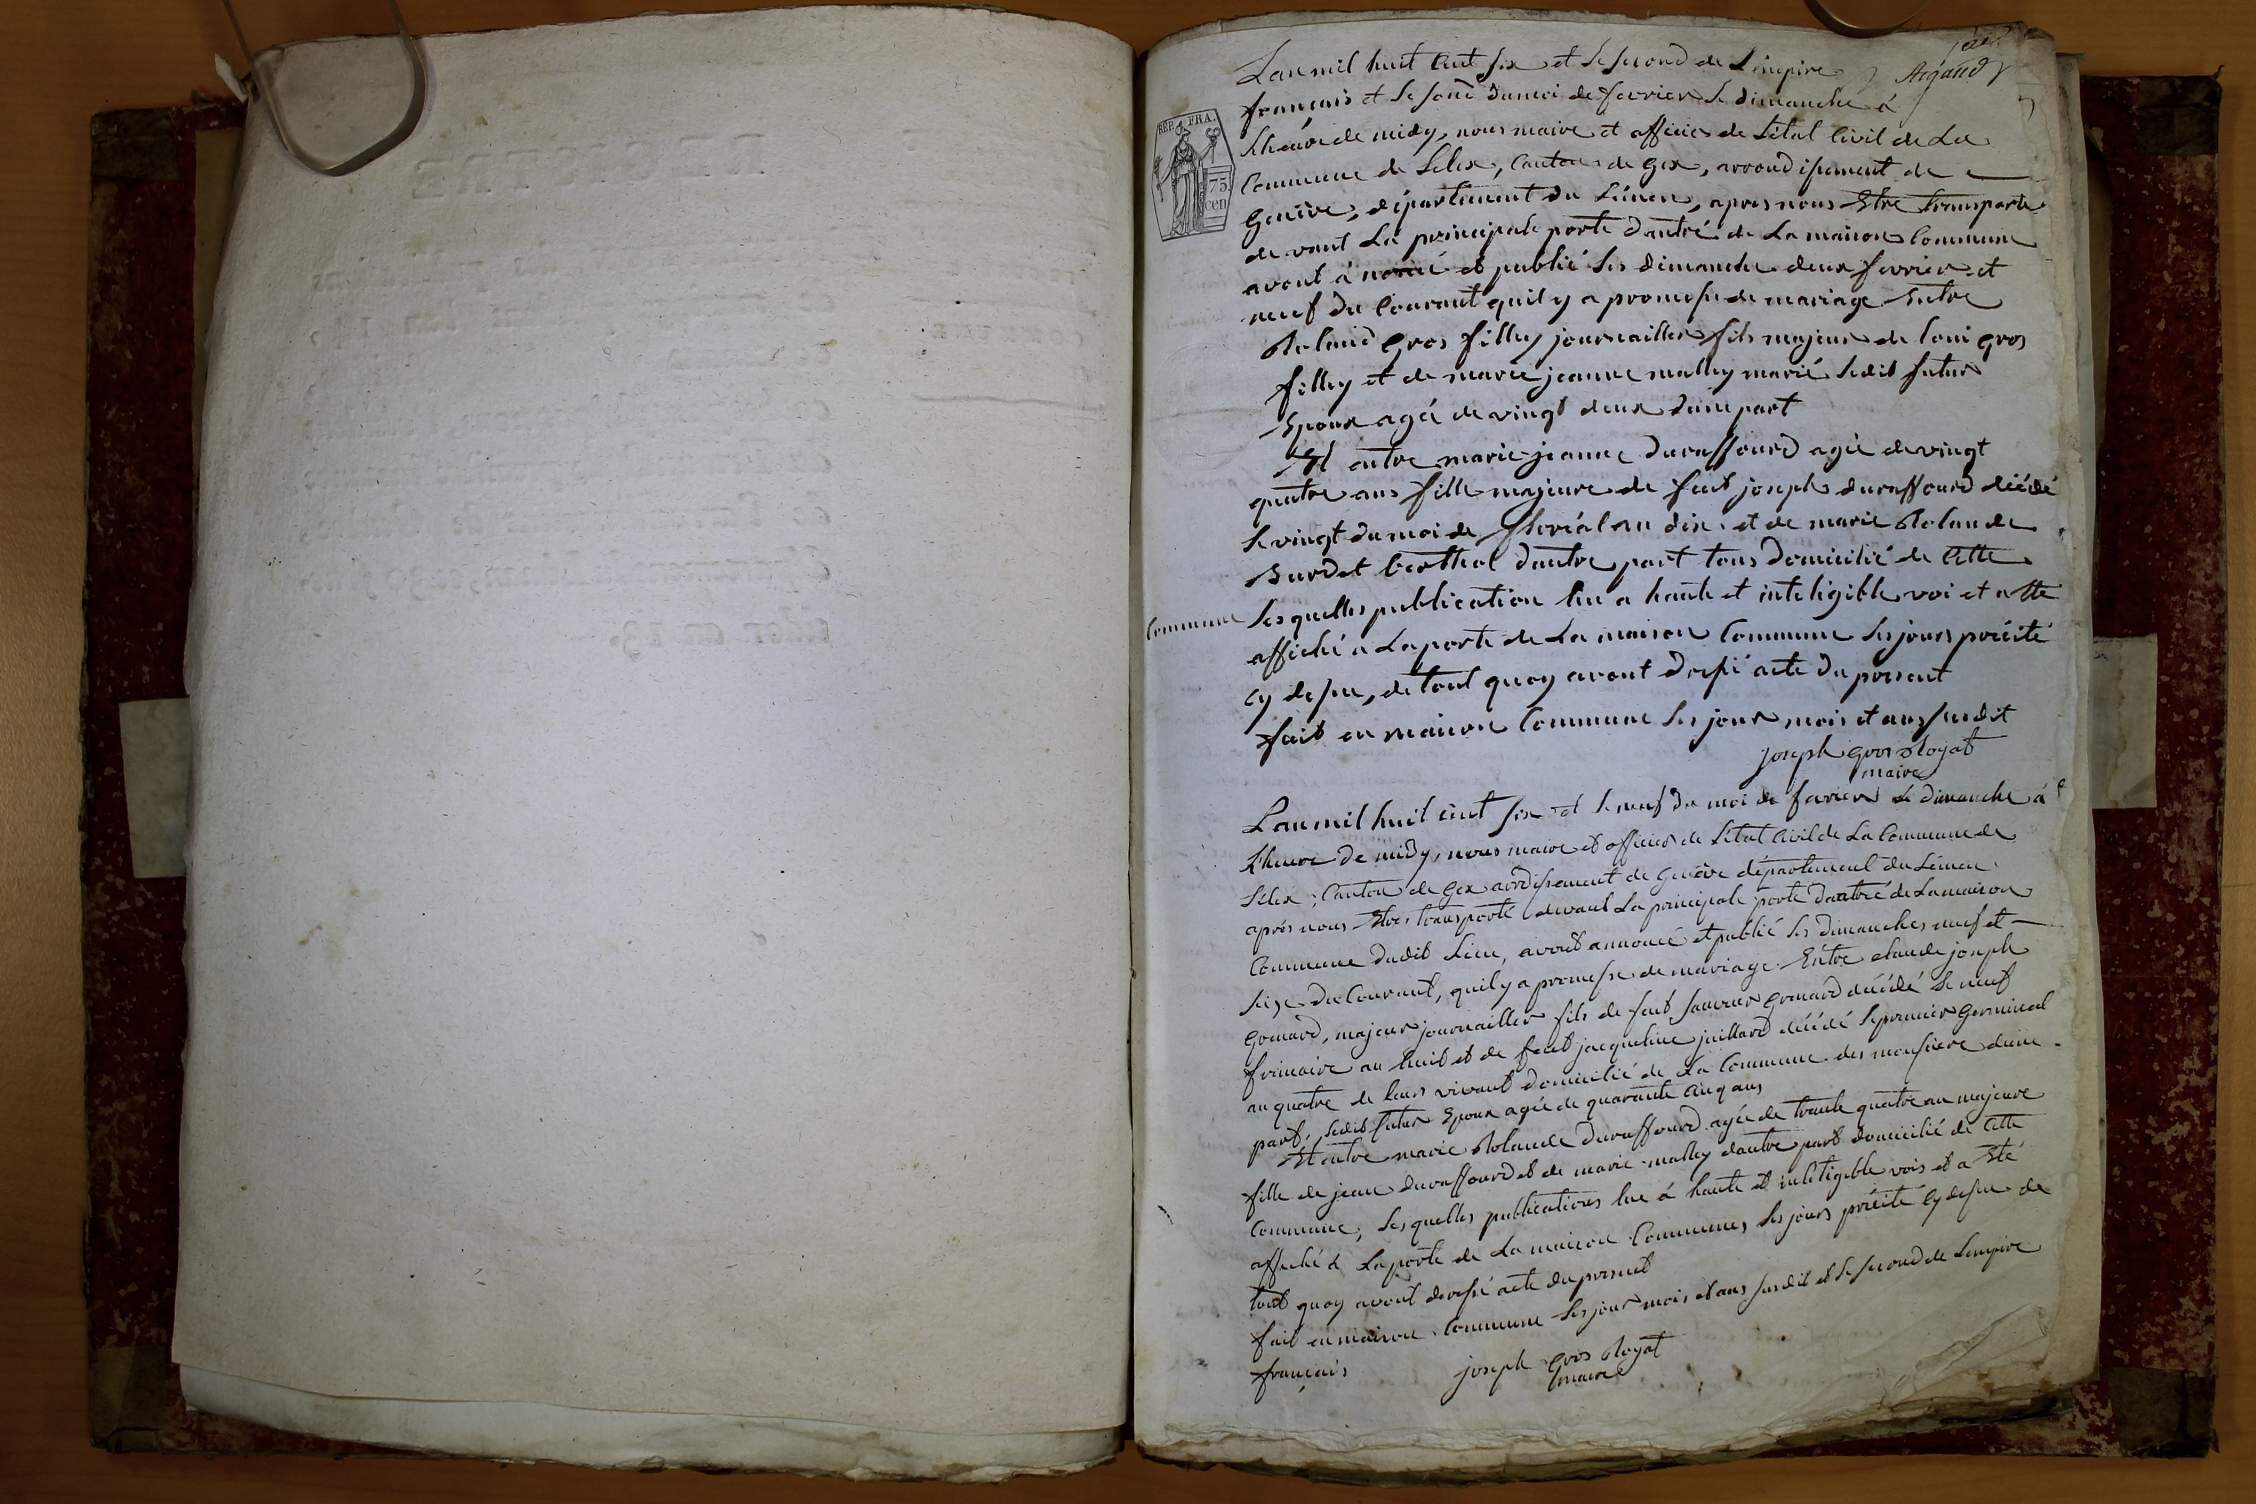 Lan mil huit Cent six et le second de Lempire
français et le second du moi de fevrier le dimanche à
Lheure de midy, nous maire et officier de Létat Civil de La
Commune de Lélex, Canton de Gex, arrondisement de
Genève, département du Léman, apres nous Etre transporté
devant La principale porte dantré de La maison Commune
avont à noncé et publié les dimanche deux fevrier et
neuf du Courant quil y a promesse de mariage Entre
Rolend Gros fillley journallier fils majeur de loui gros
filley et de marie jeanne malley marié ledit futur
Epoux agéé de vingt deux dune part
Et entre marie-jeanne Duraffourd agéé de vingt
quatre ans fille majeure de feut joseph duraffourd décédé
le vingt du moi de floréal an dix et de marie Rolande
Burdet berthet dautre part tous domicilié de Cette
Commune
les quelles publication lue a haute et inteligible voi et a Eté
affiché a La porte de La maison Commune les jours précité
cy desue, de tout quoy avont dressé acte du present
fait en maison Commune les jour mois et ans susdit
joseph gros Royat
maire
Lan mil huit cent six et le neuf du moi de fevrier le dimanche à
Lheure de midy, nous maire et officier de Létat Civil de La Commune de
Lélex, Canton de Gex arrdisement de Genève département du Léman
après nous Etre transporté devant La principale porte dantré de La maison
Commune dudit Lieu, avont annoncé et publié les dimanches neuf et
seize du Courant, quil y a promesse de mariage Entre claude joseph
gronard, majeur journallier fils de feut sauveur gronard décédé le neuf
frimaire an huit et de feut jacqueline juillard décédé le premier germinal
an quatre de leurs vivant domicilié de La Commune des moussiere dune
part, ledit futur Epoux agéé de quarante Cinq ans
Et entre marie Rolande Duraffourd agéé de trante quatre an majeure
fille de jean duraffourd et de marie malley dautre part domicilié de Cette
Commune, les quelles publications lue à haute et inteligible vois et a Eté
affiché à La porte de La maison Commune, les jours précité cy desue de
tout quoy avont dressé acte du present
fait en maison Commune les jour mois et ans susdit et le second de Lempire
français
joseph gros Royat
maire
REP. FRA.
75
cen